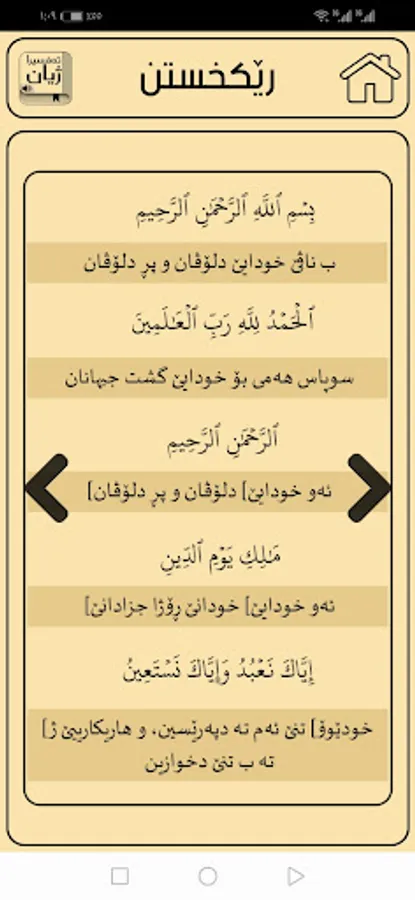 رێکخستن
تەفسیرا
ژیان
بِسْمِ ٱللَّهِ ٱلرَّحْمَٰنِ ٱلرَّحِيمِ
ب ناڤێ خودایێ دلۆڤان و پڕ دلۆڤان
ٱلْحَمْدُ لِلَّهِ رَبِّ ٱلْعَـٰلَمِينَ
سوپاس هەمی بۆ خودایێ گشت جیهانان
ٱلرَّحْمَٰنِ ٱلرَّحِيمِ
ئەو خودایێ] دلۆڤان و پڕ دلۆڤان]
مَـٰلِكِ يَوْمِ ٱلدِّينِ
ئەو خودایێ] خودانێ ڕۆژا جزادانێ]
إِيَّاكَ نَعْبُدُ وَإِيَّاكَ نَسْتَعِينُ
خودێوۆ] تنێ ئەم تە دپەرێسین، و هاریکاریێ ژ]
تە ب تنێ دخوازین